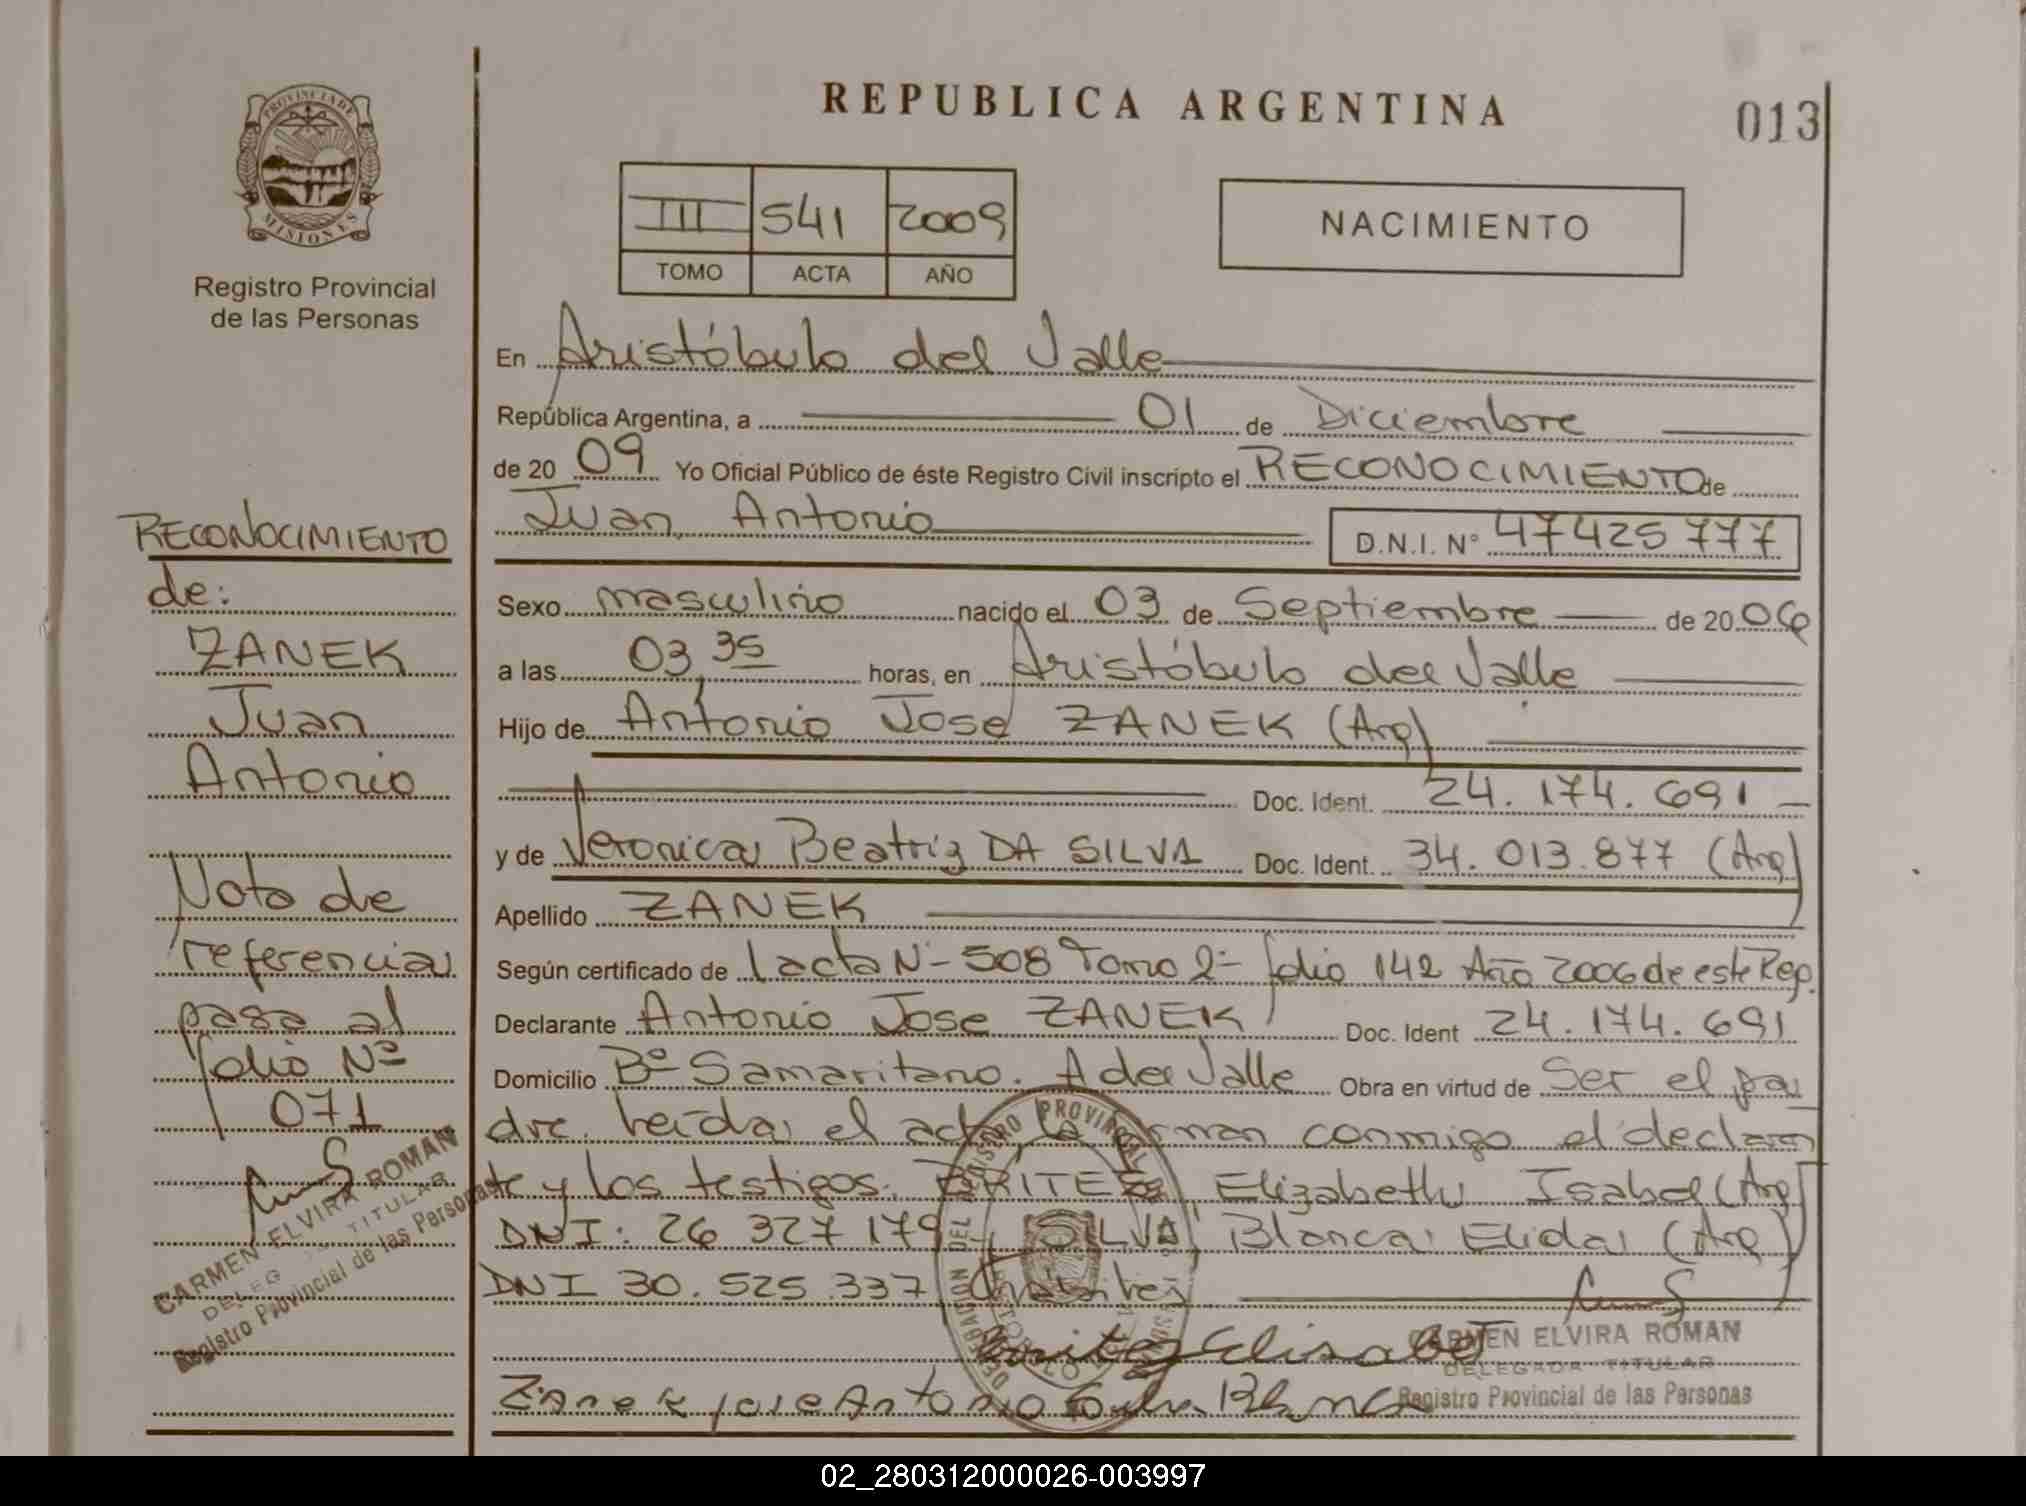 REPUBLICA ARGENTINA
013
PROVINCIA DE
MISIONES
Registro Provincial
de las Personas
III 541 2009
TOMO ACTA AÑO
NACIMIENTO
En Aristóbulo del Valle
República Argentina, a 01 de Diciembre
de 20 09 Yo Oficial Público de éste Registro Civil inscripto el RECONOCIMIENTO de
Juan Antonio D.N.I. N° 47425777
Sexo masculino nacido el 03 de Septiembre de 20 06
a las 03,35 horas, en Aristóbulo del Valle
Hijo de Antonio Jose ZANEK (Arg)
Doc. Ident. 24.174.691
y de Veronica Beatriz DA SILVA Doc. Ident. 34.013.877 (Arg)
Apellido ZANEK
Según certificado de acta N- 508 Tomo 2- folio 142 Año 2006 de este Reg.
Declarante Antonio Jose ZANEK Doc. Ident 24.174.691
Domicilio B° Samaritano. A del Valle Obra en virtud de Ser el pa
dre. Leída el acta, la firman conmigo el declaran
te y los testigos. BRITEZ Elizabeth Isabel (Arg)
DNI: 26 327 179 y SILVA Blanca Elida (Arg)
DNI 30.525.337
CARMEN ELVIRA ROMAN
DELEGADA TITULAR
Registro Provincial de las Personas
Zanek jose Antonio
RECONOCIMIENTO
de:
ZANEK
Juan
Antonio
Nota de
referencia
pasa al
folio N°
071
CARMEN ELVIRA ROMAN
TITULAR
Registro Provincial de las Personas
02_280312000026-003997